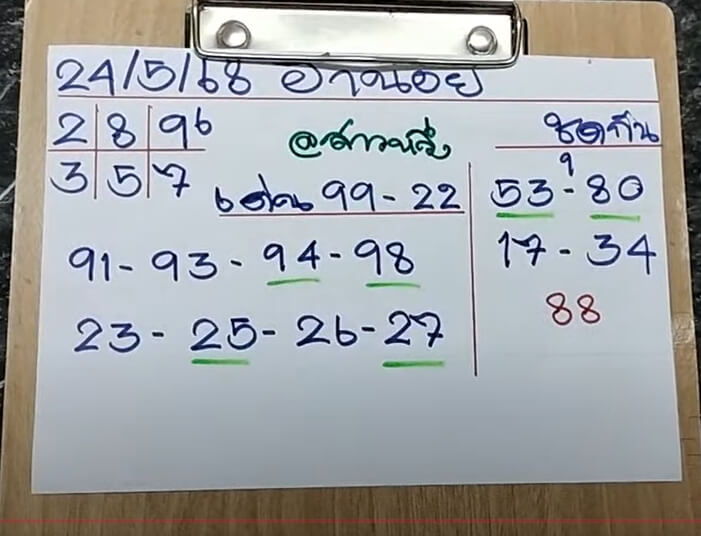 24/5/68 ฮานอย
2 8 96
3 5 7
@สาวหวึ่ง
เด่น 99 - 22
91 - 93 - 94 - 98
23 - 25 - 26 - 27
ชุดกัน
53 - 80
9
17 - 34
88